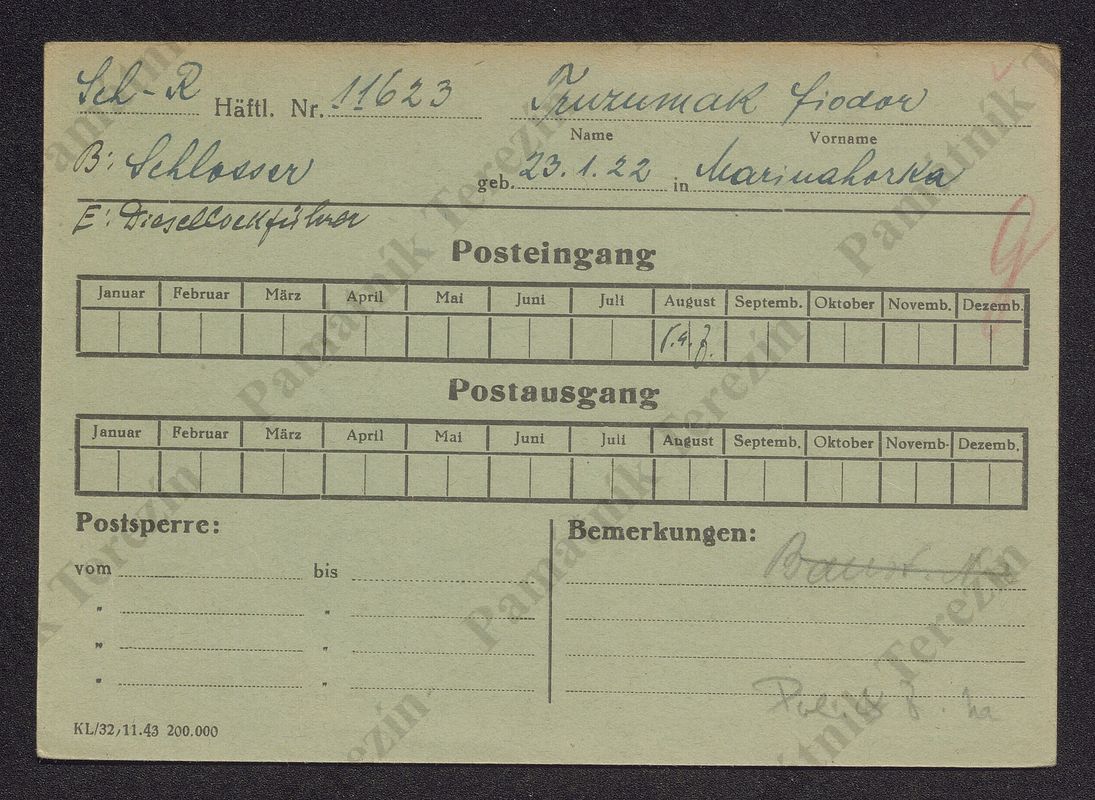 Sch-R Häftl. Nr. 11623 Truzumak Fiodor
Name Vorname
B: Schlosser geb. 23.1.22 in Marinahorka
E: Diesellockführer
Posteingang
Januar Februar März April Mai Juni Juli August Septemb. Oktober Novemb. Dezemb.
Postausgang
Januar Februar März April Mai Juni Juli August Septemb. Oktober Novemb- Dezemb.
Postsperre: Bemerkungen:
vom bis
" "
" "
" "
KL/32/11.43 200.000
Památník Terezín